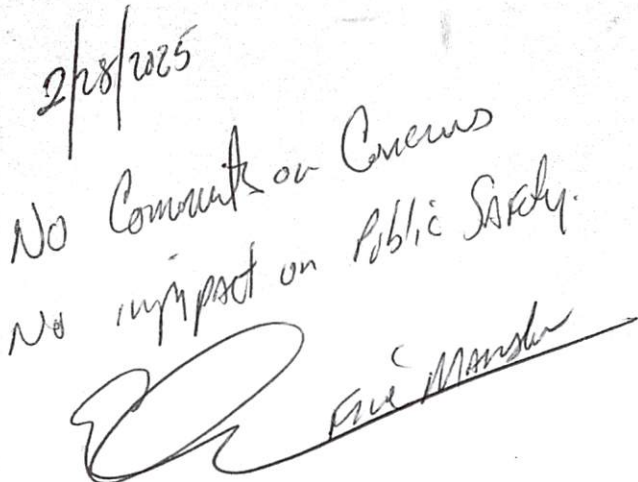 2/28/2025
No Comments or Concerns
No impact on Public Safety.
Fire Marshal